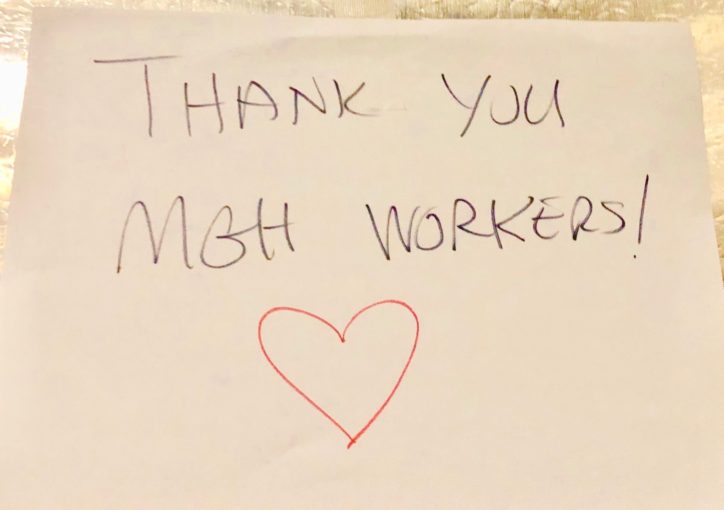 THANK YOU
MGH WORKERS!